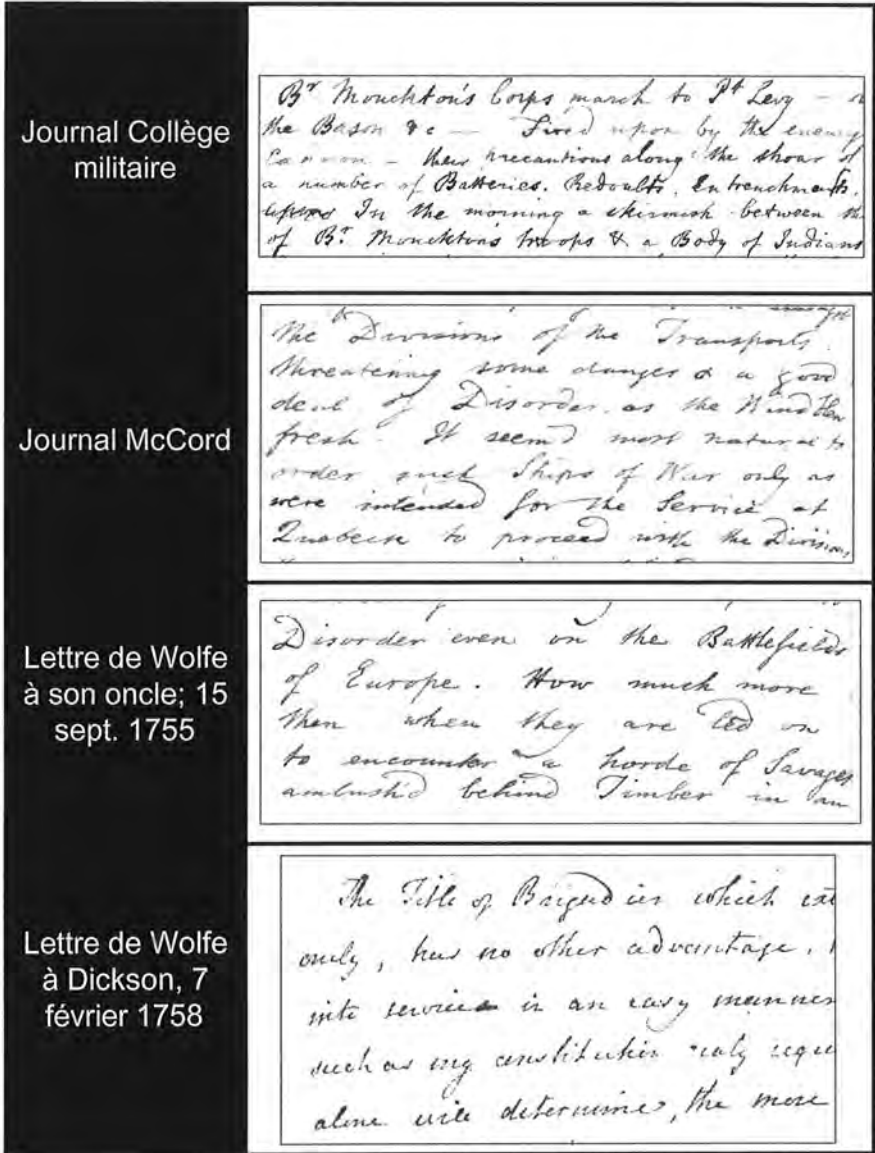 Journal Collège
militaire
Br Monckton's Corps march to Pt Levy –
the Bason &c — Fired upon by the enemy
Cannon – their precautions along the shoar of
a number of Batteries. Redoubts. Entrenchments.
In the morning a skirmish between the
of Br. Monckton's troops & a Body of Indians
Journal McCord
the Divisions of the Transports
threatening some danger & a good
deal of Disorder. as the Wind
fresh. It seem'd most natural to
order such Ships of War only as
were intended for the Service at
Quebeck to proceed with the Division,
Lettre de Wolfe
à son oncle; 15
sept. 1755
Disorder even on the Battlefields
of Europe. How much more
then when they are led on
to encounter a horde of Savages
ambush'd behind Timber in an
Lettre de Wolfe
à Dickson, 7
février 1758
The Title of Brigadier which
only, has no other advantage.
into service in an easy manner
such as my constitution requ
alone will determine, the more